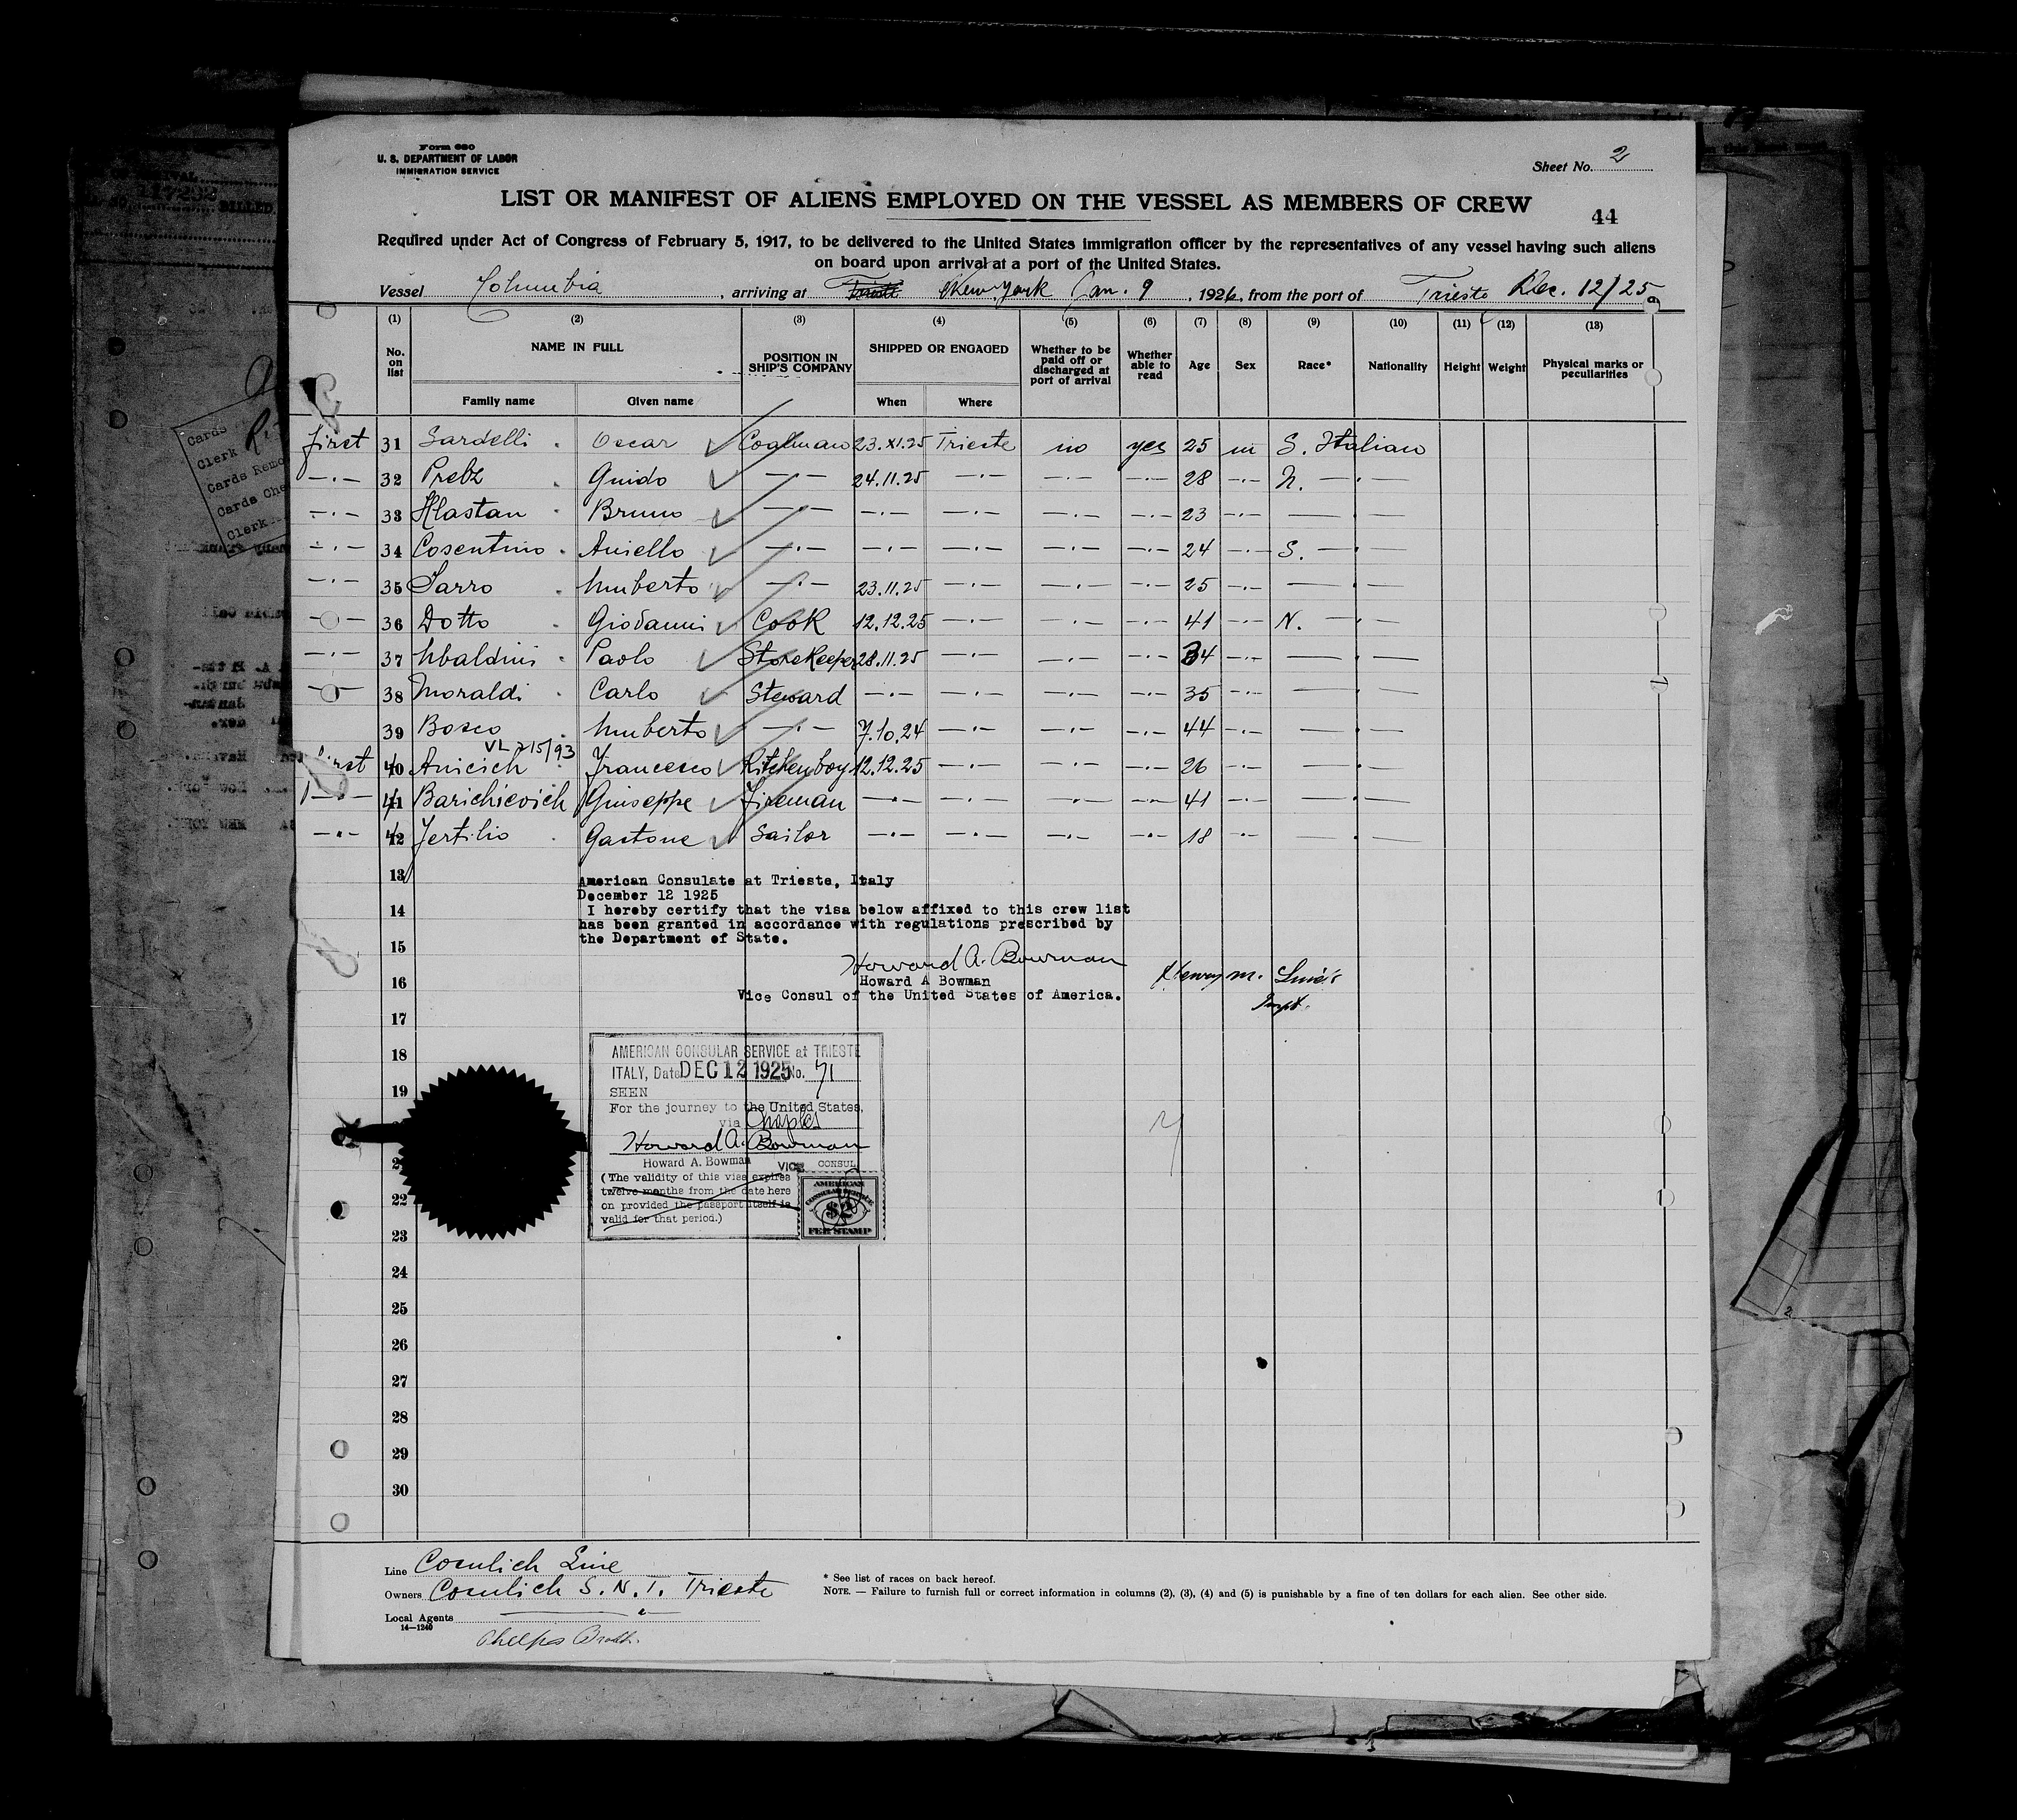 Form 680
U. S. DEPARTMENT OF LABOR
IMMIGRATION SERVICE
Sheet No. 2
LIST OR MANIFEST OF ALIENS EMPLOYED ON THE VESSEL AS MEMBERS OF CREW
44
Required under Act of Congress of February 5, 1917, to be delivered to the United States immigration officer by the representatives of any vessel having such aliens
on board upon arrival at a port of the United States.
Vessel Columbia, arriving at Trieste New York Jan. 9, 1926, from the port of Trieste Dec. 12/25
(1) (2) (3) (4) (5) (6) (7) (8) (9) (10) (11) (12) (13)
No. on list NAME IN FULL POSITION IN SHIP'S COMPANY SHIPPED OR ENGAGED Whether to be paid off or discharged at port of arrival Whether able to read Age Sex Race* Nationality Height Weight Physical marks or peculiarities
Family name Given name When Where
first 31 Sardelli Oscar Coalman 23.XI.25 Trieste no yes 25 m S. Italian
—·— 32 Prebz Guido —·— 24.11.25 —·— —·— —·— 28 —·— N. —·—
—·— 33 Hlastan Bruno —·— —·— —·— —·— —·— 23 —·— —·—
—·— 34 Cosentino Aniello —·— —·— —·— —·— —·— 24 —·— S. —·—
—·— 35 Sarro Umberto —·— 23.11.25 —·— —·— —·— 25 —·— —·—
—·— 36 Dotto Giovanni Cook 12.12.25 —·— —·— —·— 41 —·— N. —·—
—·— 37 Ubaldini Paolo Storekeeper 28.11.25 —·— —·— —·— 34 —·— —·—
—·— 38 Moraldi Carlo Steward —·— —·— —·— —·— 35 —·— —·—
39 Bosco Umberto —·— 7.10.24 —·— —·— —·— 44 —·— —·—
VL 215/93
first 40 Anicich Francesco Kitchenboy 12.12.25 —·— —·— —·— 26 —·— —·—
—·— 41 Barichievich Giuseppe Fireman —·— —·— —·— —·— 41 —·— —·—
—·— 42 Fertilio Gastone Sailor —·— —·— —·— —·— 18 —·— —·—
13
American Consulate at Trieste, Italy
December 12 1925
14
I hereby certify that the visa below affixed to this crew list
has been granted in accordance with regulations prescribed by
the Department of State.
15
Howard A. Bowman
16
Howard A Bowman
Vice Consul of the United States of America.
Henry M.
Inspt.
17
18
AMERICAN CONSULAR SERVICE at TRIESTE
ITALY, Date DEC 12 1925 No. 71
19
SEEN
For the journey to the United States,
via Naples
Howard A. Bowman
Howard A. Bowman VICE CONSUL
(The validity of this visa expires
twelve months from the date here
on provided the passport itself is
valid for that period.)
AMERICAN
CONSULAR SERVICE
$2
FEE STAMP
22
23
24
25
26
27
28
29
30
Line Cosulich Line
Owners Cosulich S. N. T. Trieste
Local Agents
14—1240
Phelps Broth.
* See list of races on back hereof.
NOTE. — Failure to furnish full or correct information in columns (2), (3), (4) and (5) is punishable by a fine of ten dollars for each alien. See other side.
Cards
Clerk
Cards Remo
Cards Che
Clerk